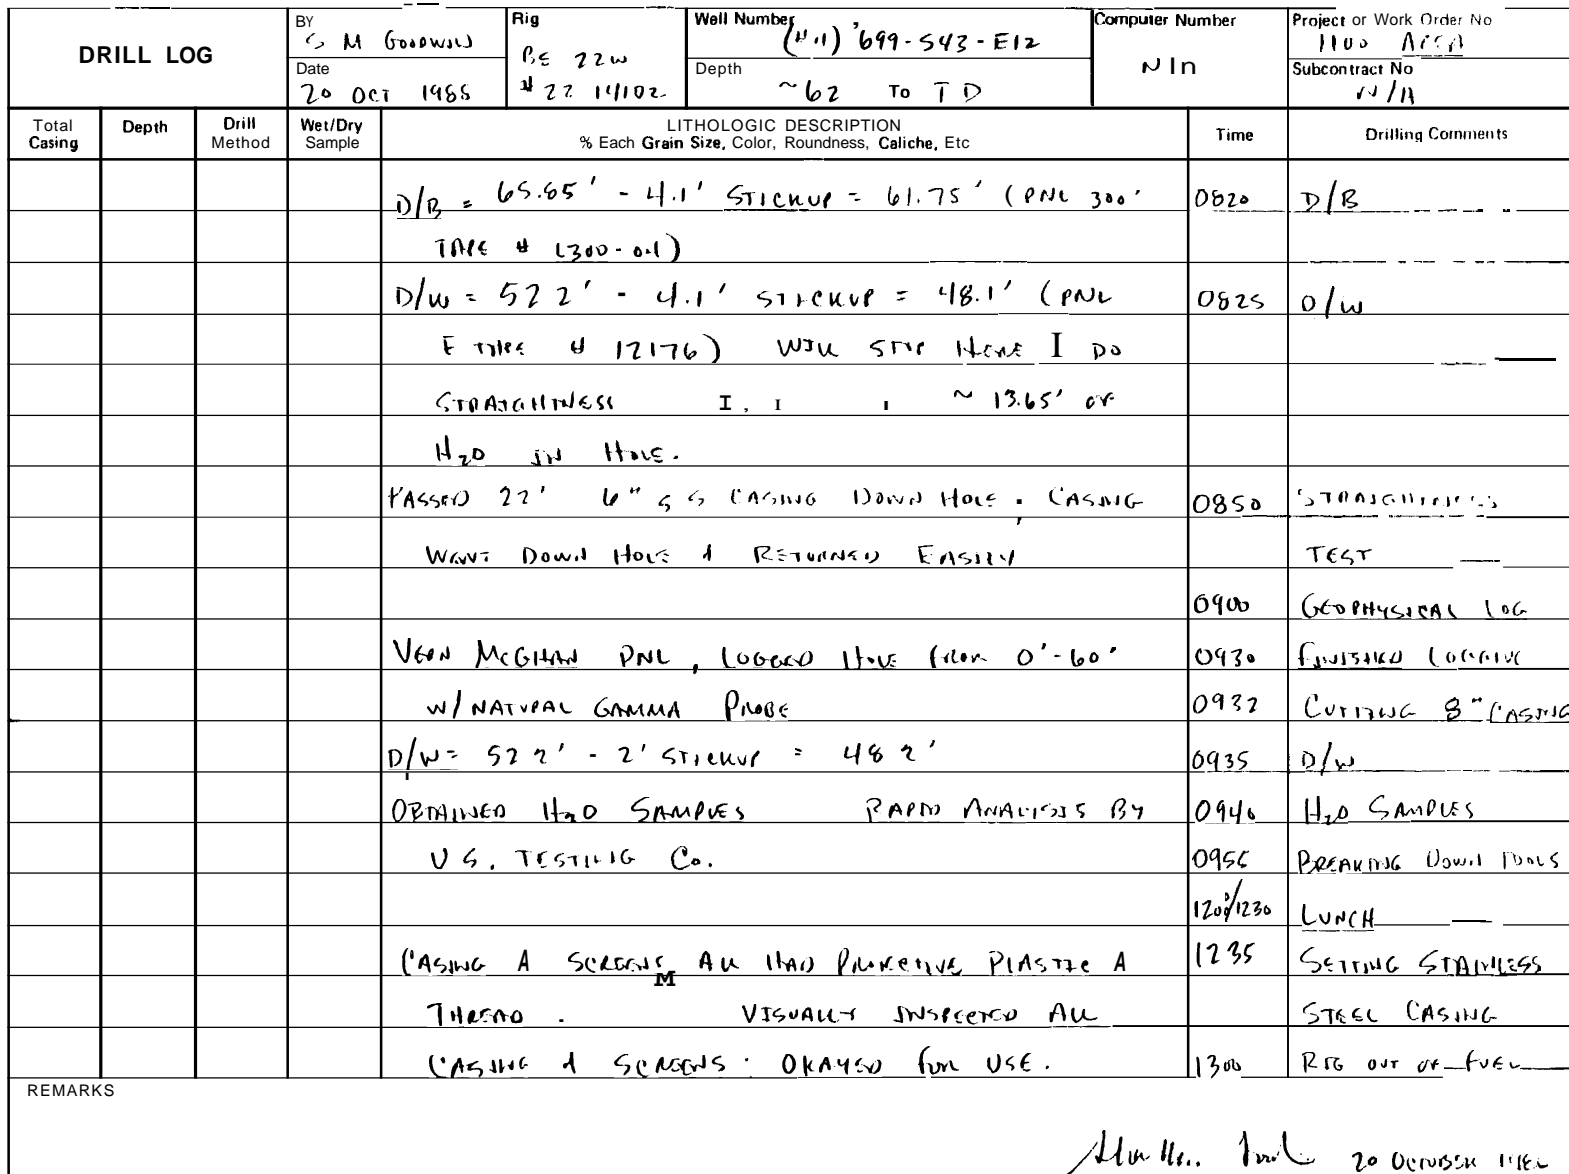 DRILL LOG
BY
S M GOODWIN
Date
20 OCT 1988
Rig
BE 22W
# 22 14102
Well Number
(#11) 699-S43-E12
Depth
~62 TO TD
Computer Number
Project or Work Order No
1100 AREA
Subcontract No
N/A
Total Casing
Depth
Drill Method
Wet/Dry Sample
LITHOLOGIC DESCRIPTION
% Each Grain Size, Color, Roundness, Caliche, Etc
Time
Drilling Comments
D/B = 65.85' - 4.1' STICKUP = 61.75' (PNL 300' 0820 D/B
TAPE #
D/W = 52 2' - 4.1' STICKUP = 48.1' (PNL 0825 D/W
E TAPE # 12176) WILL STOP HERE I DO
STRAIGHTNESS ~ 13.65' OF
H2O IN HOLE.
PASSED 22' 6" S S CASING DOWN HOLE; CASING 0850 STRAIGHTNESS
WENT DOWN HOLE & RETURNED EASILY TEST
0900 GEOPHYSICAL LOG
VERN MCGHAN PNL, LOGGED HOLE FROM 0'-60' 0930 FINISHED LOGGING
W/ NATURAL GAMMA PROBE 0932 CUTTING 8" CASING
D/W = 52 2' - 2' STICKUP = 48 2' 0935 D/W
OBTAINED H2O SAMPLES RAPID ANALYSIS BY 0940 H2O SAMPLES
U S. TESTING Co. 0955 BREAKING DOWN TOOLS
1200/1230 LUNCH
CASING & SCREENS ALL HAD PROTECTIVE PLASTIC 1235 SETTING STAINLESS
THREAD. VISUALLY INSPECTED ALL STEEL CASING
CASING & SCREENS: OKAYED FOR USE. 1300 RIG OUT OF FUEL
REMARKS
20 OCTOBER